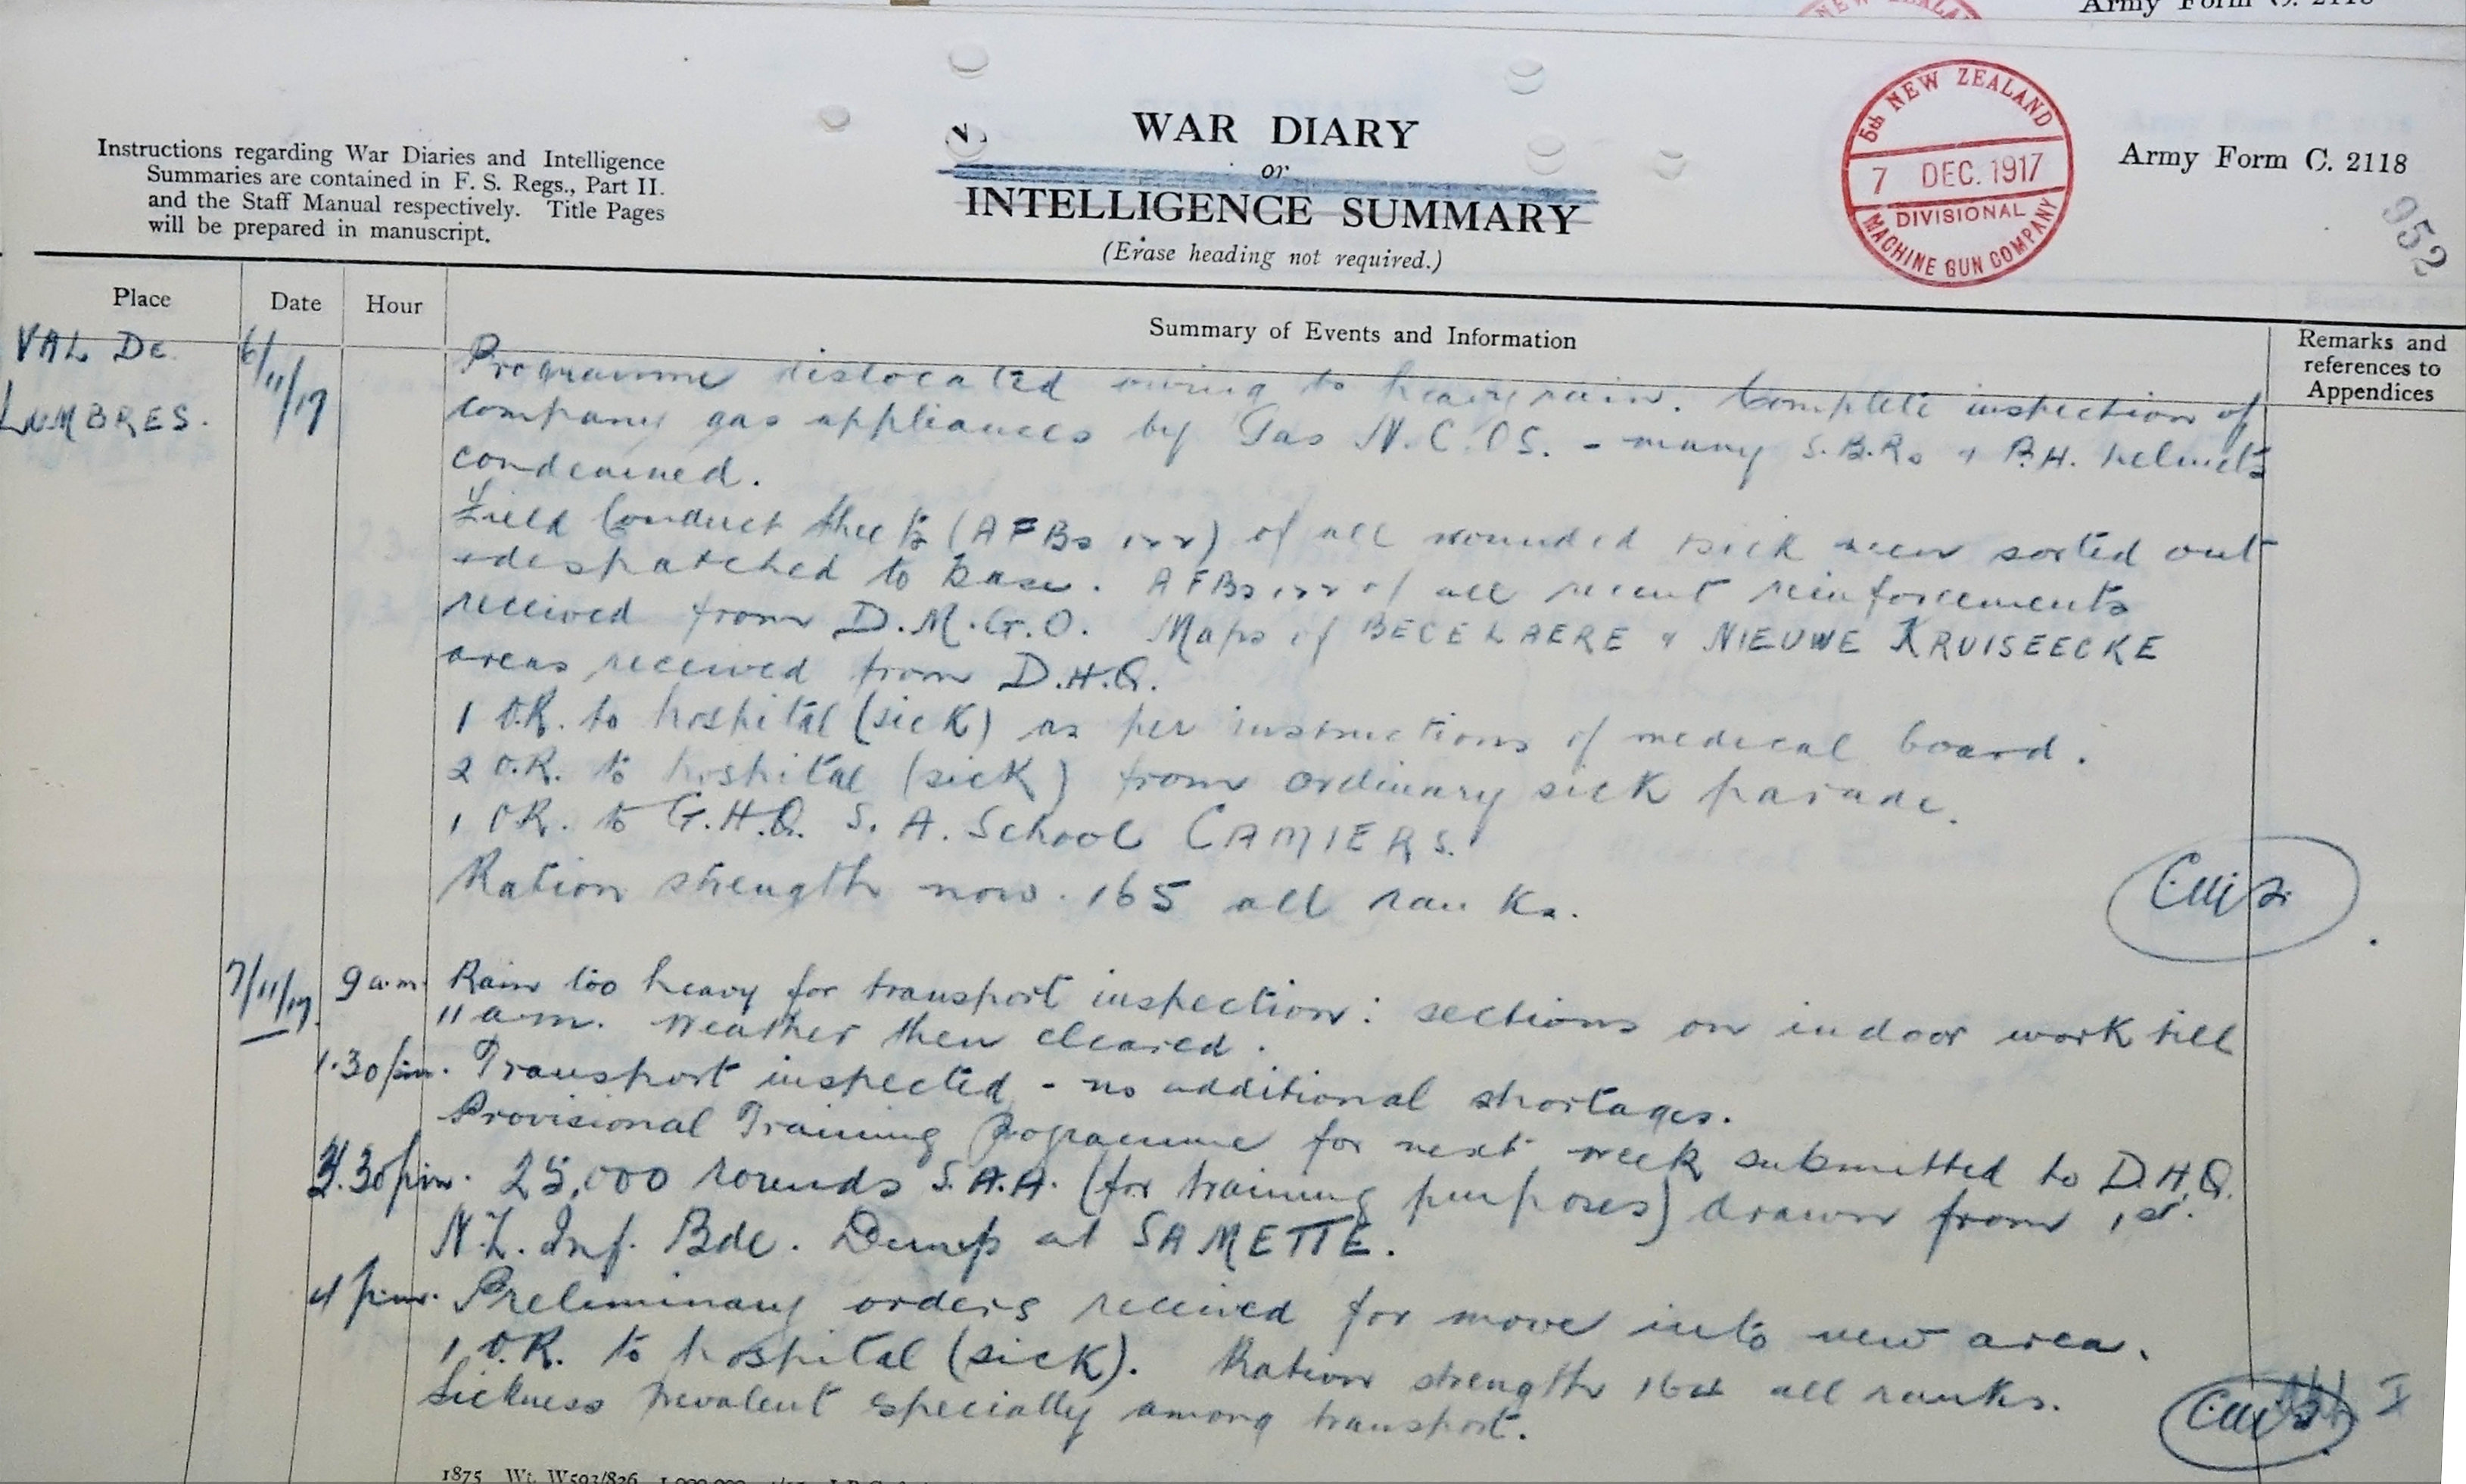 Army Form C. 2118
NEW ZEALAND
WAR DIARY
or
INTELLIGENCE SUMMARY
(Erase heading not required.)
Instructions regarding War Diaries and Intelligence
Summaries are contained in F. S. Regs., Part II.
and the Staff Manual respectively. Title Pages
will be prepared in manuscript.
5th NEW ZEALAND
7 DEC. 1917
DIVISIONAL
MACHINE GUN COMPANY
Army Form C. 2118
952
Place Date Hour Summary of Events and Information Remarks and references to Appendices
VAL DE LUMBRES. 6/11/17
Programme dislocated owing to heavy rain. Complete inspection of
company gas appliances by Gas N.C.OS. - many S.B.Rs + P.H. helmets
condemned.
Field Conduct Sheets (AFBs 122) of all wounded sick men sorted out
+ despatched to base. AFBs 122 of all recent reinforcements
received from D.M.G.O. Maps of BECELAERE + NIEUWE KRUISEECKE
areas received from D.H.Q.
1 O.R. to hospital (sick) as per instructions of medical board.
2 O.R. to hospital (sick) from ordinary sick parade.
1 OR. to G.H.Q. S.A. School CAMIERS.
Ration strength now. 165 all ranks.
7/11/17. 9 a.m. Rain too heavy for transport inspection: sections on indoor work till
11 a.m. Weather then cleared.
1.30 pm. Transport inspected - no additional shortages.
Provisional Training Programme for next week submitted to D.H.Q.
3.30 pm. 25,000 rounds S.A.A. (for training purposes) drawn from 1st.
N.Z. Inf. Bde. Dump at SAMETTE.
4 pm. Preliminary orders received for move into new area.
1 O.R. to hospital (sick). Ration strength 164 all ranks.
Sickness prevalent especially among transport.
1875 Wt. W593/826